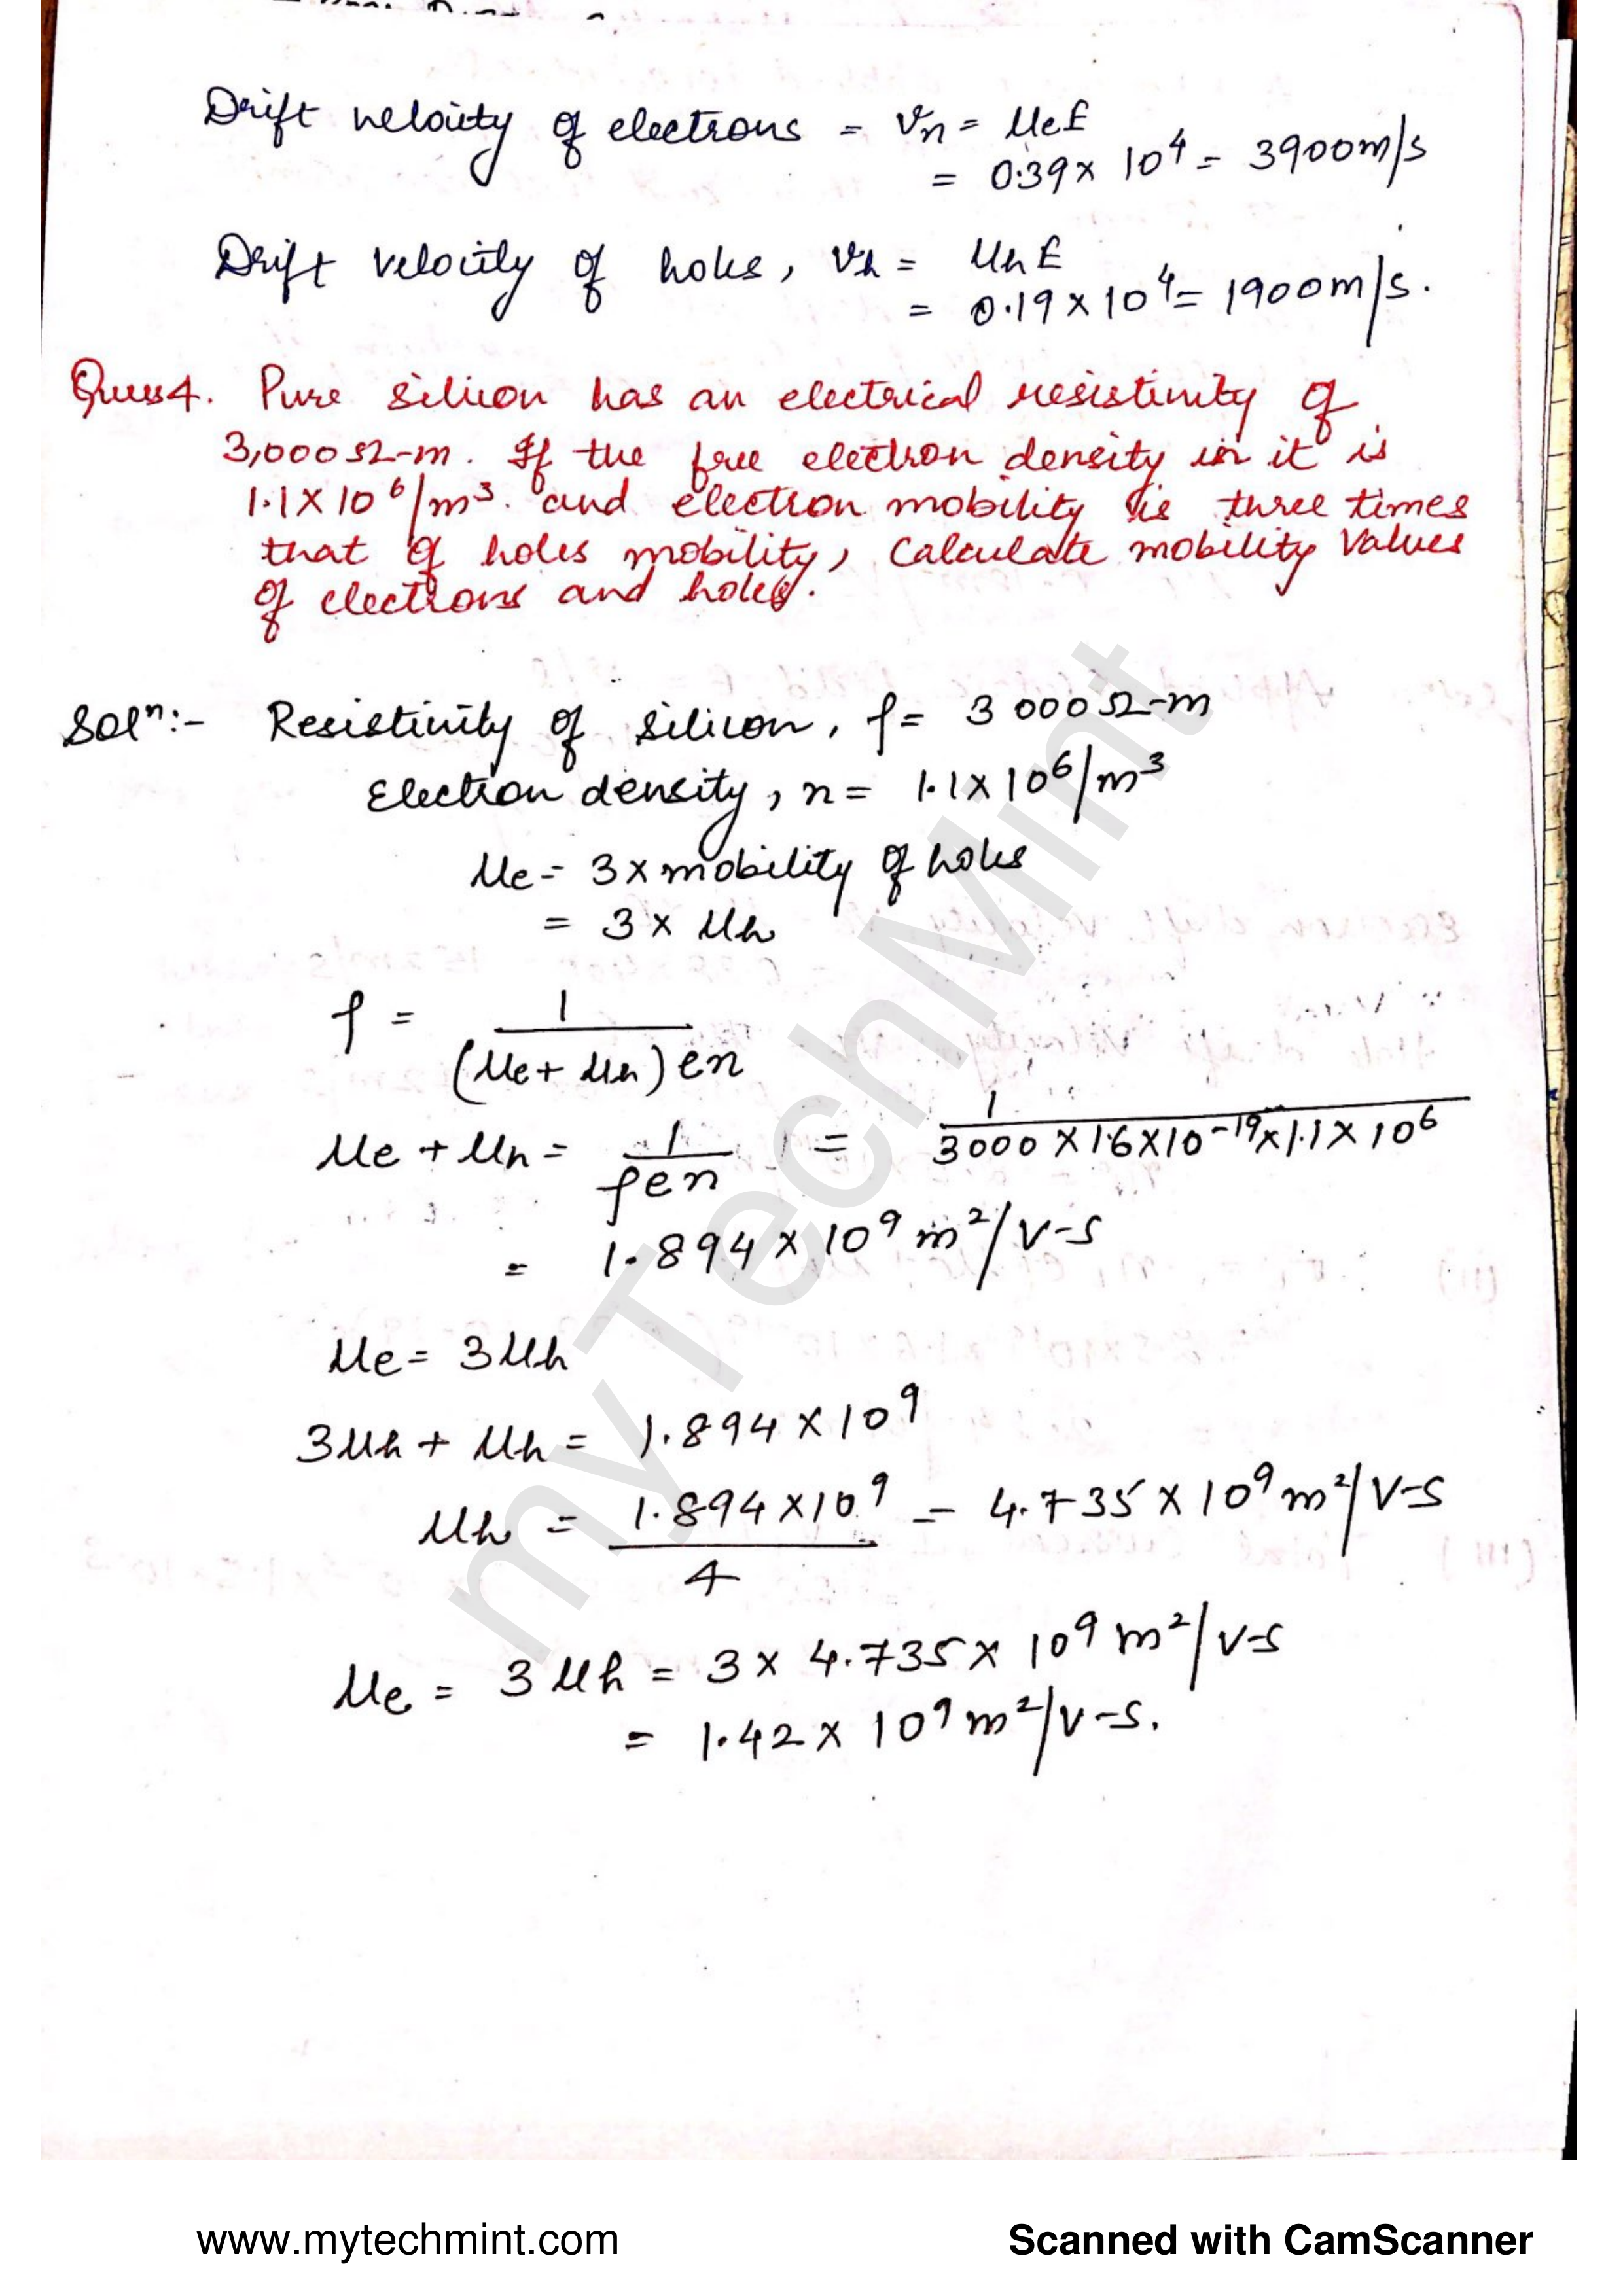 Drift velocity of electrons = Vn = μeE
= 0.39 x 10^4 = 3900m/s
Drift velocity of holes, Vh = μhE
= 0.19 x 10^4 = 1900m/s.
Ques4. Pure silicon has an electrical resistivity of
3,000Ω-m. If the free electron density in it is
1.1 X 10^6/m^3. and electron mobility is three times
that of holes mobility, Calculate mobility Values
of electrons and holes.
Sol^n:- Resistivity of silicon, ρ = 3000Ω-m
Electron density, n = 1.1 x 10^6/m^3
μe = 3 x mobility of holes
= 3 x μh
ρ = 1/(μe + μh)en
μe + μh = 1/ρen = 1/3000 X 1.6 X 10^-19 X 1.1 X 10^6
= 1.894 x 10^9 m^2/V-S
μe = 3μh
3μh + μh = 1.894 x 10^9
μh = 1.894 x 10^9/4 = 4.735 x 10^9 m^2/V-S
μe = 3μh = 3 x 4.735 x 10^9 m^2/V-S
= 1.42 x 10^9 m^2/V-S.
myTechMint
www.mytechmint.com
Scanned with CamScanner